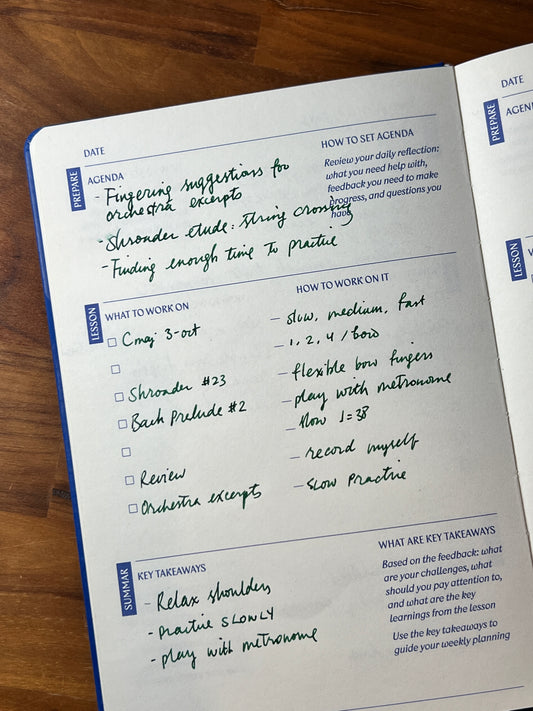 DATE
PREPARE
AGENDA
- Fingering suggestions for
orchestra excerpts
- Shroader etude: string crossing
- Finding enough time to practice
HOW TO SET AGENDA
Review your daily reflection;
what you need help with,
feedback you need to make
progress, and questions you
have
LESSON
WHAT TO WORK ON
HOW TO WORK ON IT
☐ Cmaj 3-oct
- slow, medium, fast
☐
- 1, 2, 4 / bow
☐ Shroader #23
- flexible bow fingers
☐ Bach Prelude #2
- play with metronome
- slow ♩=38
☐
☐ Review
- record myself
☐ Orchestra excerpts
- slow practice
SUMMAR
KEY TAKEAWAYS
- Relax shoulders
- practice SLOWLY
- play with metronome
WHAT ARE KEY TAKEAWAYS
Based on the feedback: what
are your challenges, what
should you pay attention to,
and what are the key
learnings from the lesson
Use the key takeaways to
guide your weekly planning
DATE
PREPARE
AGEN
LESSON